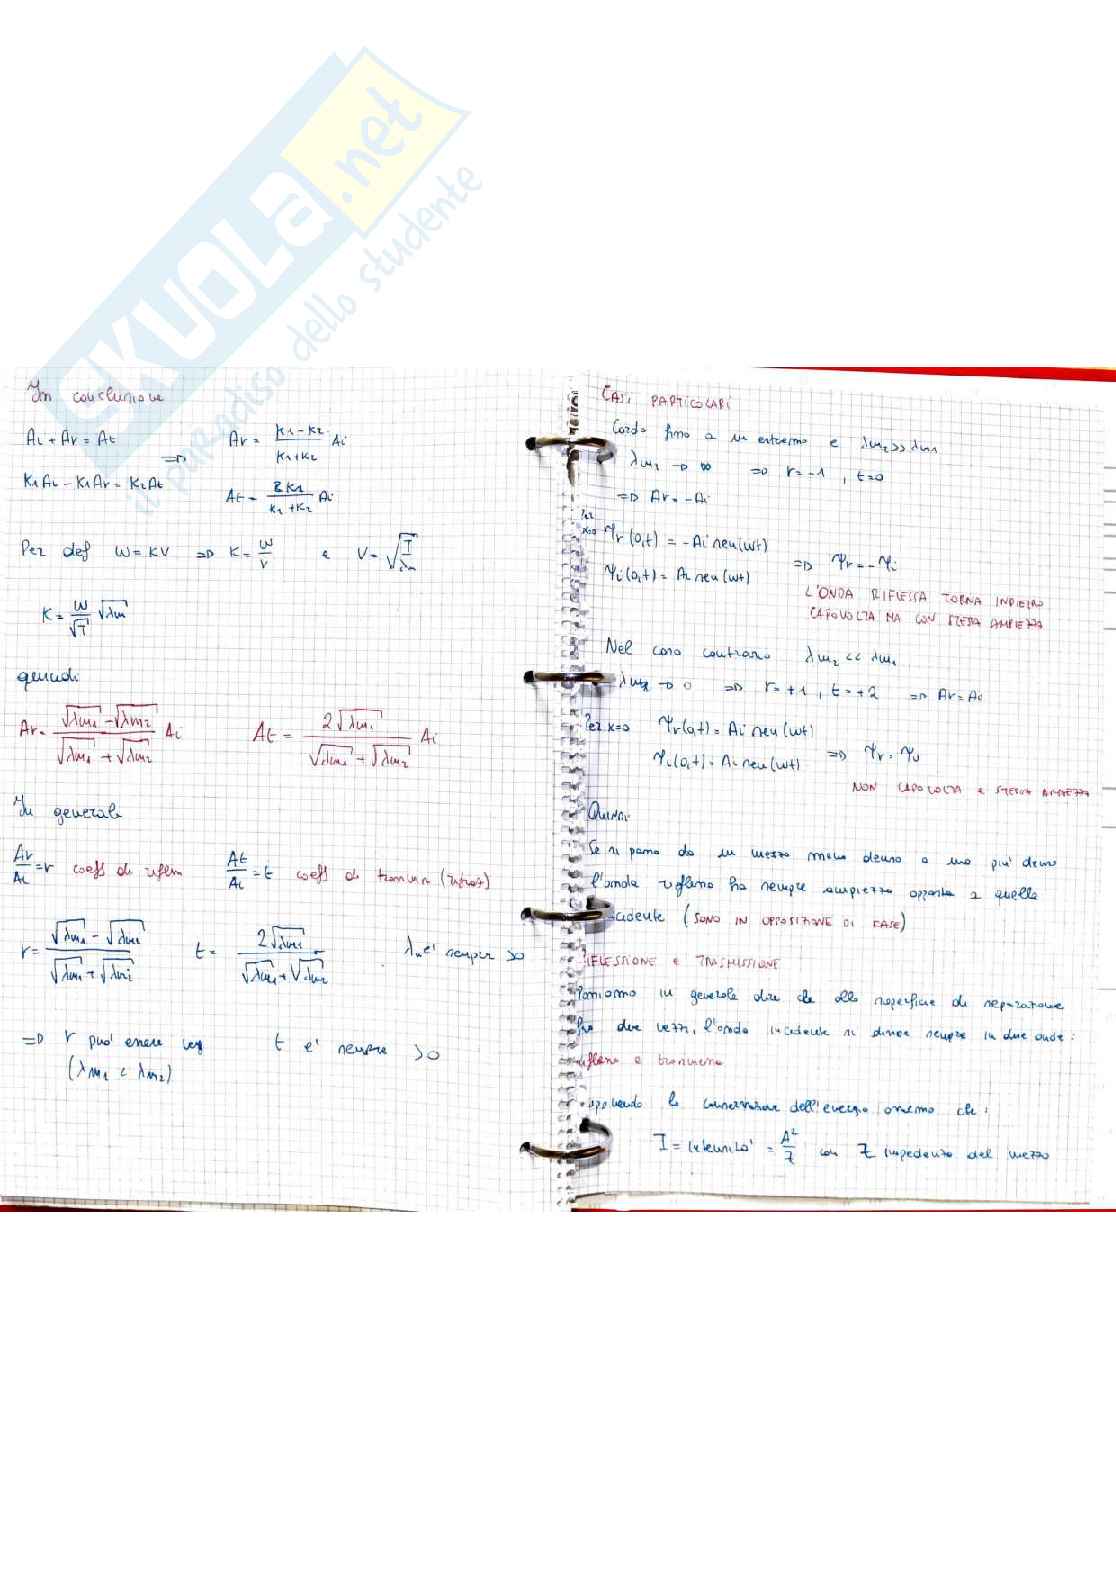 SKUOLA.net
il paradiso dello studente
In conclusione
Ai + Ar = At
K1Ai - K1Ar = K2At
=> Ar = (K1-K2)/(K1+K2) Ai
At = 2K1/(K1+K2) Ai
Per def W = KV => K = W/V e V = √(T/λm)
K = W/√T √λm
quindi
Ar = (√λm1 - √λm2)/(√λm1 + √λm2) Ai At = 2√λm1/(√λm1 + √λm2) Ai
In generale
Ar/Ai = r coeff di rifless At/Ai = t coeff di
r = (√λm1 - √λm2)/(√λm1 + √λm2) t = 2√λm1/(√λm1 + √λm2) λm è sempre >0
=> r può essere t e' sempre >0
(λm1 < λm2)
CASI PARTICOLARI
Corda fino a un estremo e λm2 >> λm1
λm2 → ∞ => r = -1, t=0
=> Ar = -Ai
Per x=0 Ψr(0,t) = -Ai sen(wt)
Ψi(0,t) = Ai sen(wt) => Ψr = -Ψi
L'ONDA RIFLESSA TORNA INDIETRO
CAPOVOLTA MA CON STESSA AMPIEZZA
Nel caso contrario λm2 << λm1
λm2 → 0 => r = +1, t = +2 => Ar = Ai
Per x=0 Ψr(0,t) = Ai sen(wt)
Ψi(0,t) = Ai sen(wt) => Ψr = Ψi
NON CAPOVOLTA e STESSA AMPIEZZA
Quindi
Se si passa da un mezzo meno denso a uno piu' denso
l'onda riflessa ha sempre ampiezza opposta a quella
incidente (SONO IN OPPOSIZIONE DI FASE)
RIFLESSIONE e TRASMISSIONE
Possiamo in generale dire che alla superficie di separazione
fra due mezzi, l'onda incidente si divide sempre in due onde:
riflessa e trasmessa
la conservazione dell'energia che:
I = intensità = A²/Z con Z impedenza del mezzo